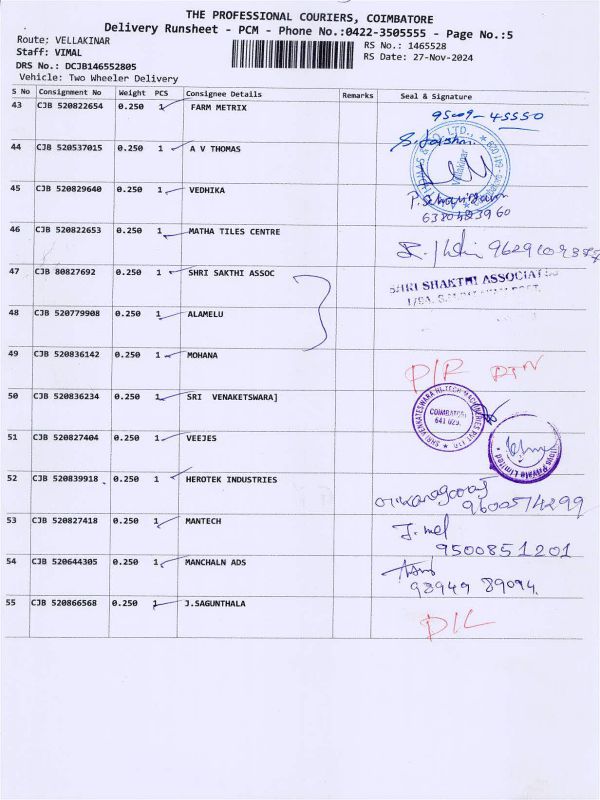 THE PROFESSIONAL COURIERS, COIMBATORE
Delivery Runsheet - PCM - Phone No.:0422-3505555 - Page No.:5
Route: VELLAKINAR
RS No.: 1465528
Staff: VIMAL
RS Date: 27-Nov-2024
DRS No.: DCJB146552805
Vehicle: Two Wheeler Delivery
S No Consignment No Weight PCS Consignee Details Remarks Seal & Signature
43 CJB 520822654 0.250 1 FARM METRIX
95009-45550
44 CJB 520537015 0.250 1 A V THOMAS
Vellakinar
45 CJB 520829640 0.250 1 VEDHIKA
46 CJB 520822653 0.250 1 MATHA TILES CENTRE
47 CJB 80827692 0.250 1 SHRI SAKTHI ASSOC
SHRI SHAKTHI ASSOCIATES
48 CJB 520779908 0.250 1 ALAMELU
49 CJB 520836142 0.250 1 MOHANA
50 CJB 520836234 0.250 1 SRI VENAKETSWARA]
SHRI VENKATESWARA HI-TECH MACHINERIES PVT LTD
COIMBATORE
641 029.
51 CJB 520827404 0.250 1 VEEJES
Private Limited
52 CJB 520839918 0.250 1 HEROTEK INDUSTRIES
9600574299
53 CJB 520827418 0.250 1 MANTECH
9500851201
54 CJB 520644305 0.250 1 MANCHALN ADS
98949 89094.
55 CJB 520866568 0.250 1 J.SAGUNTHALA
D/L